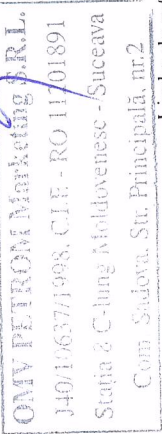 OMV PETROM Marketing S.R.L.
J40/10637/1998, C.I.F. - RO 11201891
Stația 2 C-lung Moldovenesc - Suceava
Com. Sadova, Str. Principală, nr.2